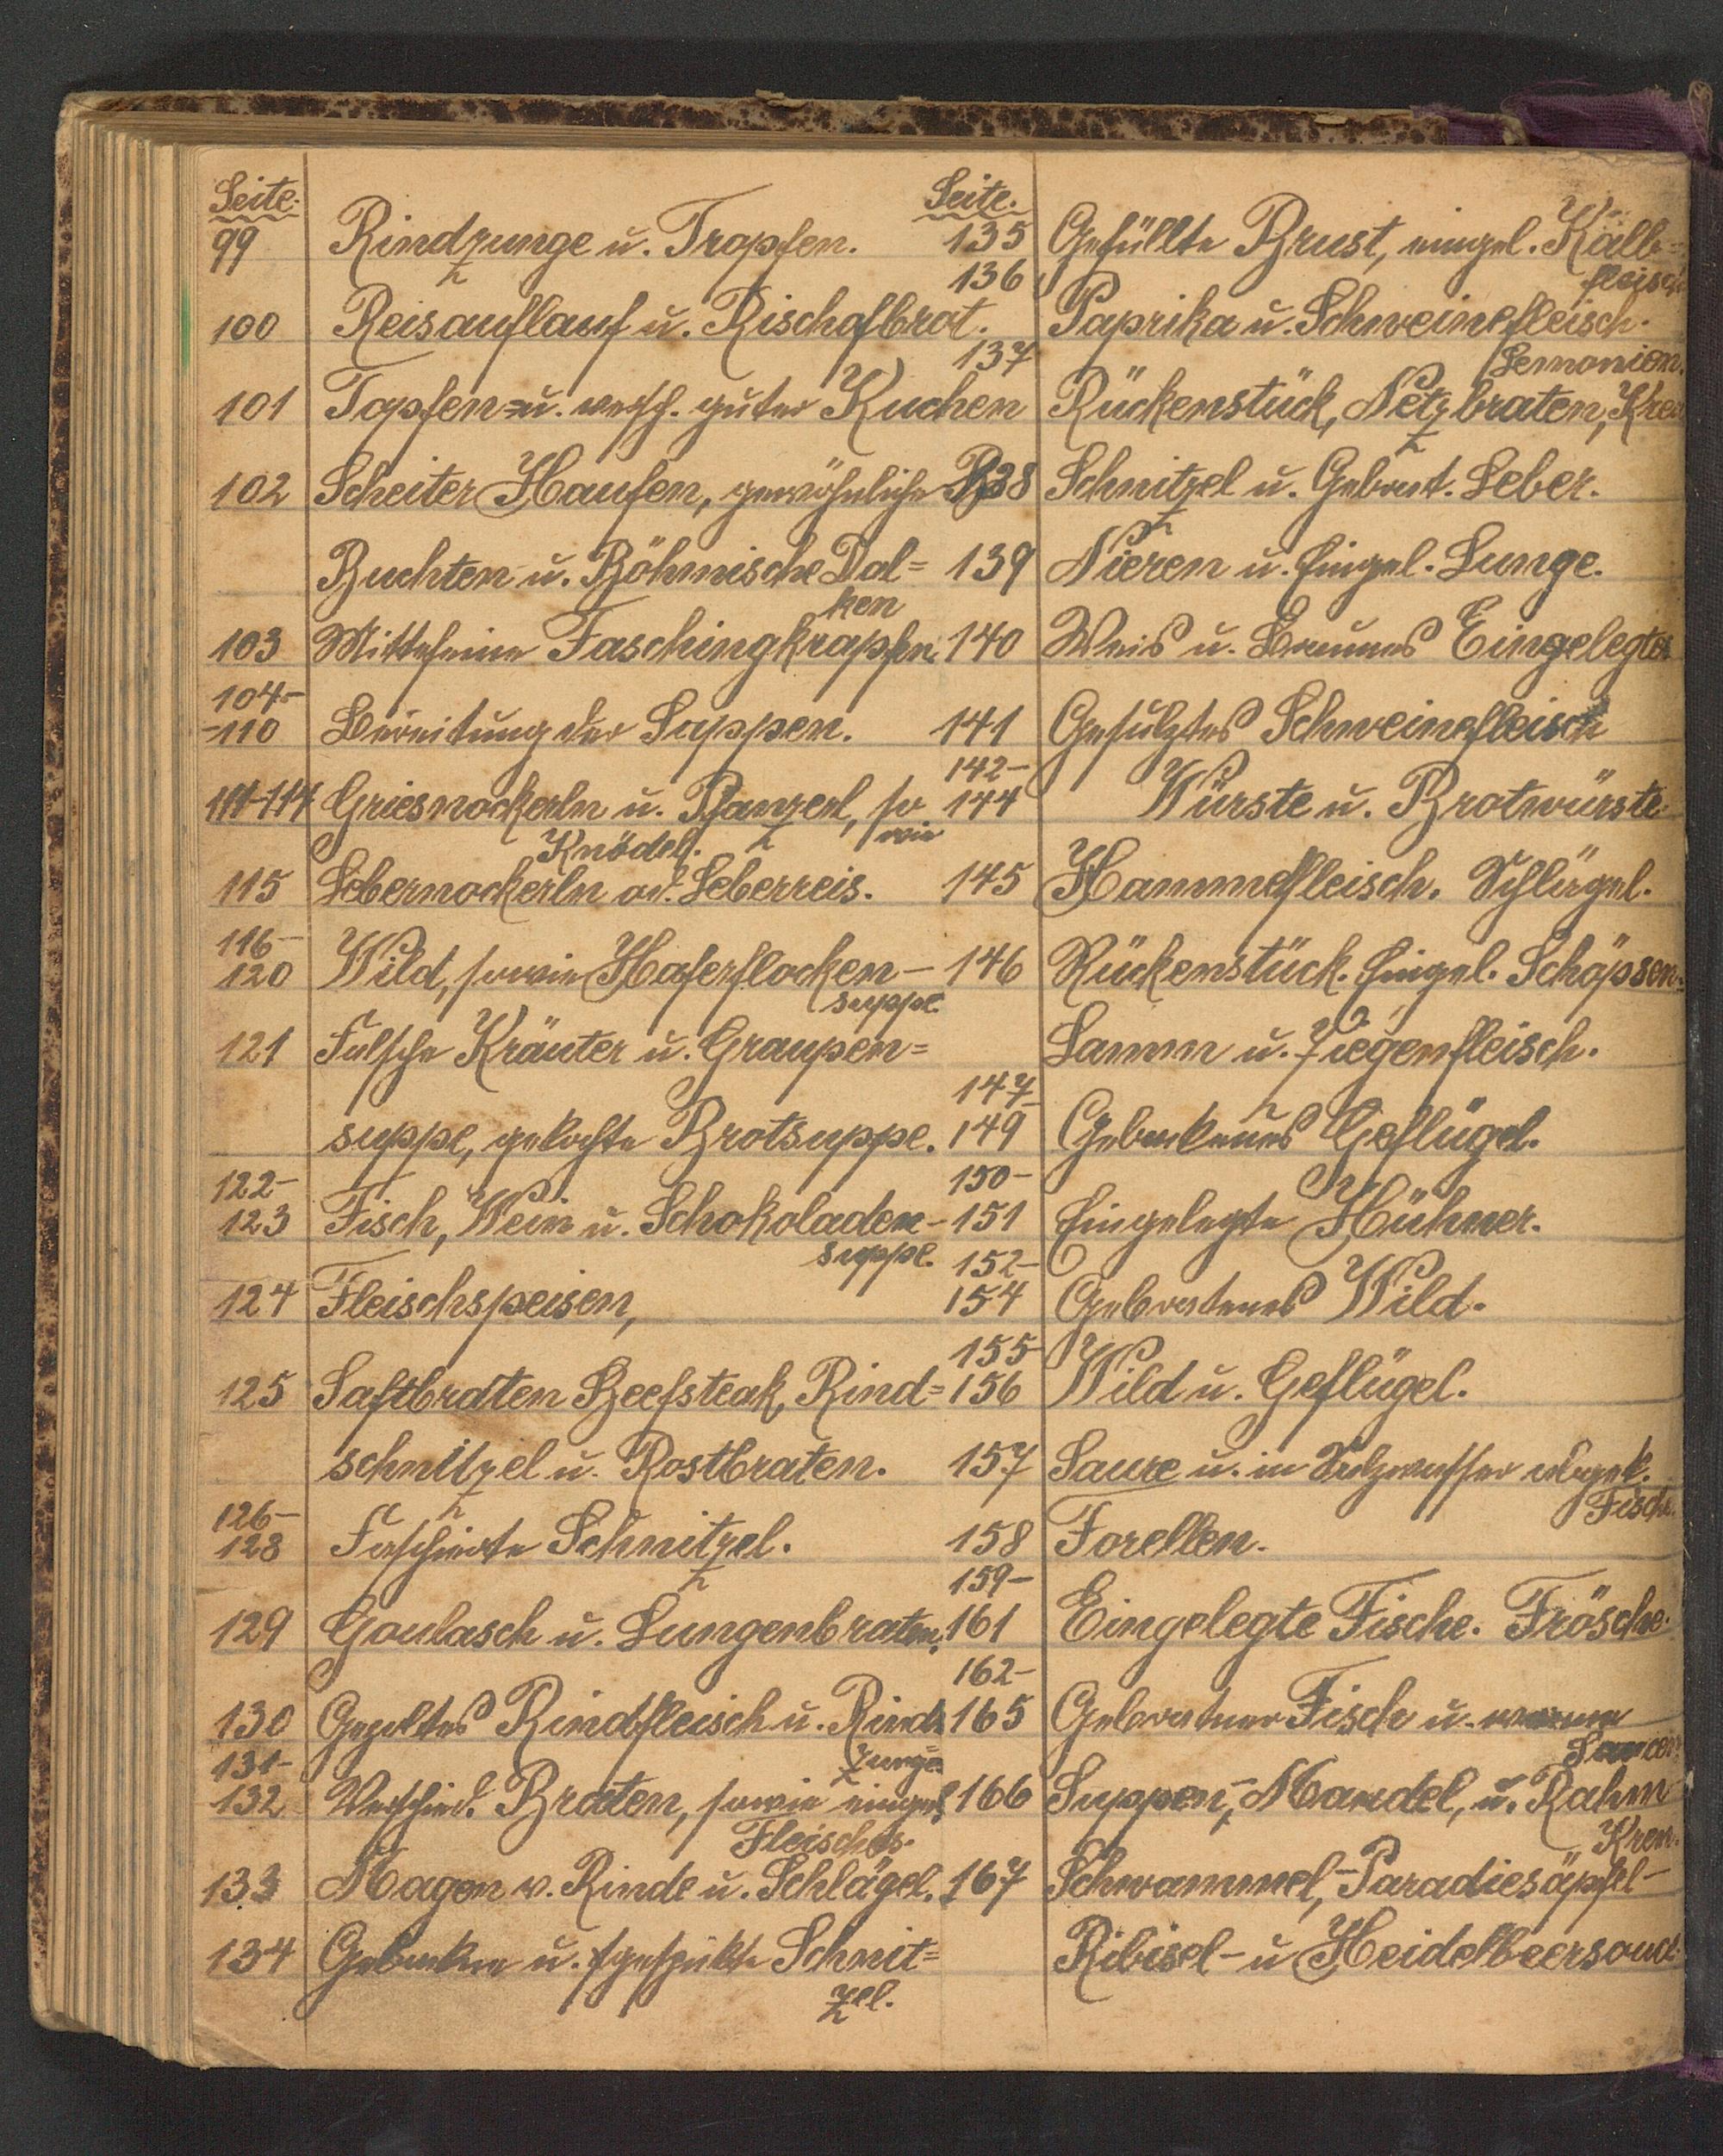 Seite.
99 Rindzunge u. Tropfen.
100 Reisauflauf u. Bischofbrot.
101 Topfen- u. versch. guter Kuchen
102 Scheiter Haufen, gewöhnliche
Buchten u. Böhmische Dal=
ken
103 Mittelfeine Faschingkrapfen.
104-
-110 Bereitung der Suppen.
111-114 Griesnockerln u. Panzerl, so
wie
Knödel.
115 Lebernockerln od. Leberreis.
116-
120 Wild, sowie Haferflocken-
suppe.
121 Falsche Kräuter u. Graupen=
suppe, gekochte Brotsuppe.
122-
123 Fisch, Wein u. Schokoladen-
suppe.
124 Fleischspeisen,
125 Saftbraten Beefsteak, Rind=
schnitzel u. Rostbraten.
126-
128 Faschierte Schnitzel.
129 Goulasch u. Lungenbraten.
130 Rindfleisch u. Rinds
zunge.
131-
132 Verschied. Braten, sowie eingel.
Fleisches.
133 Magen v. Rinde u. Schlägel.
134 Gebacken u. gespickte Schnit=
zel.
Seite.
135 Gefüllte Brust, eingel. Kalb=
fleisch
136 Paprika u. Schweinefleisch.
137 Lemonien.
Rückenstück, Netzbraten, Kren
138 Schnitzel u. Gebrat. Leber.
139 Nieren u. Eingel. Lunge.
140 Weis u. Braunes Eingelegtes
141 Gesulztes Schweinefleisch
142-
144 Würste u. Bratwürste
145 Hammelfleisch. Schlägel.
146 Rückenstück. Eingel. Schöpsen.
Lamm u. Ziegenfleisch.
147-
149 Gebackenes Geflügel.
150-
151 Eingelegte Hühner.
152-
154 Gebratenes Wild.
155-
156 Wild u. Geflügel.
157 Saure u. in Salzwasser abgek.
Fische.
158 Forellen.
159-
161 Eingelegte Fische. Frösche.
162-
165 Gebratner Fisch u. warme
Saucen.
166 Suppen-, Mandel, u. Rahm-
Kren.
167 Schwammel,- Paradiesäpfel-
Ribisel- u Heidelbeersauce